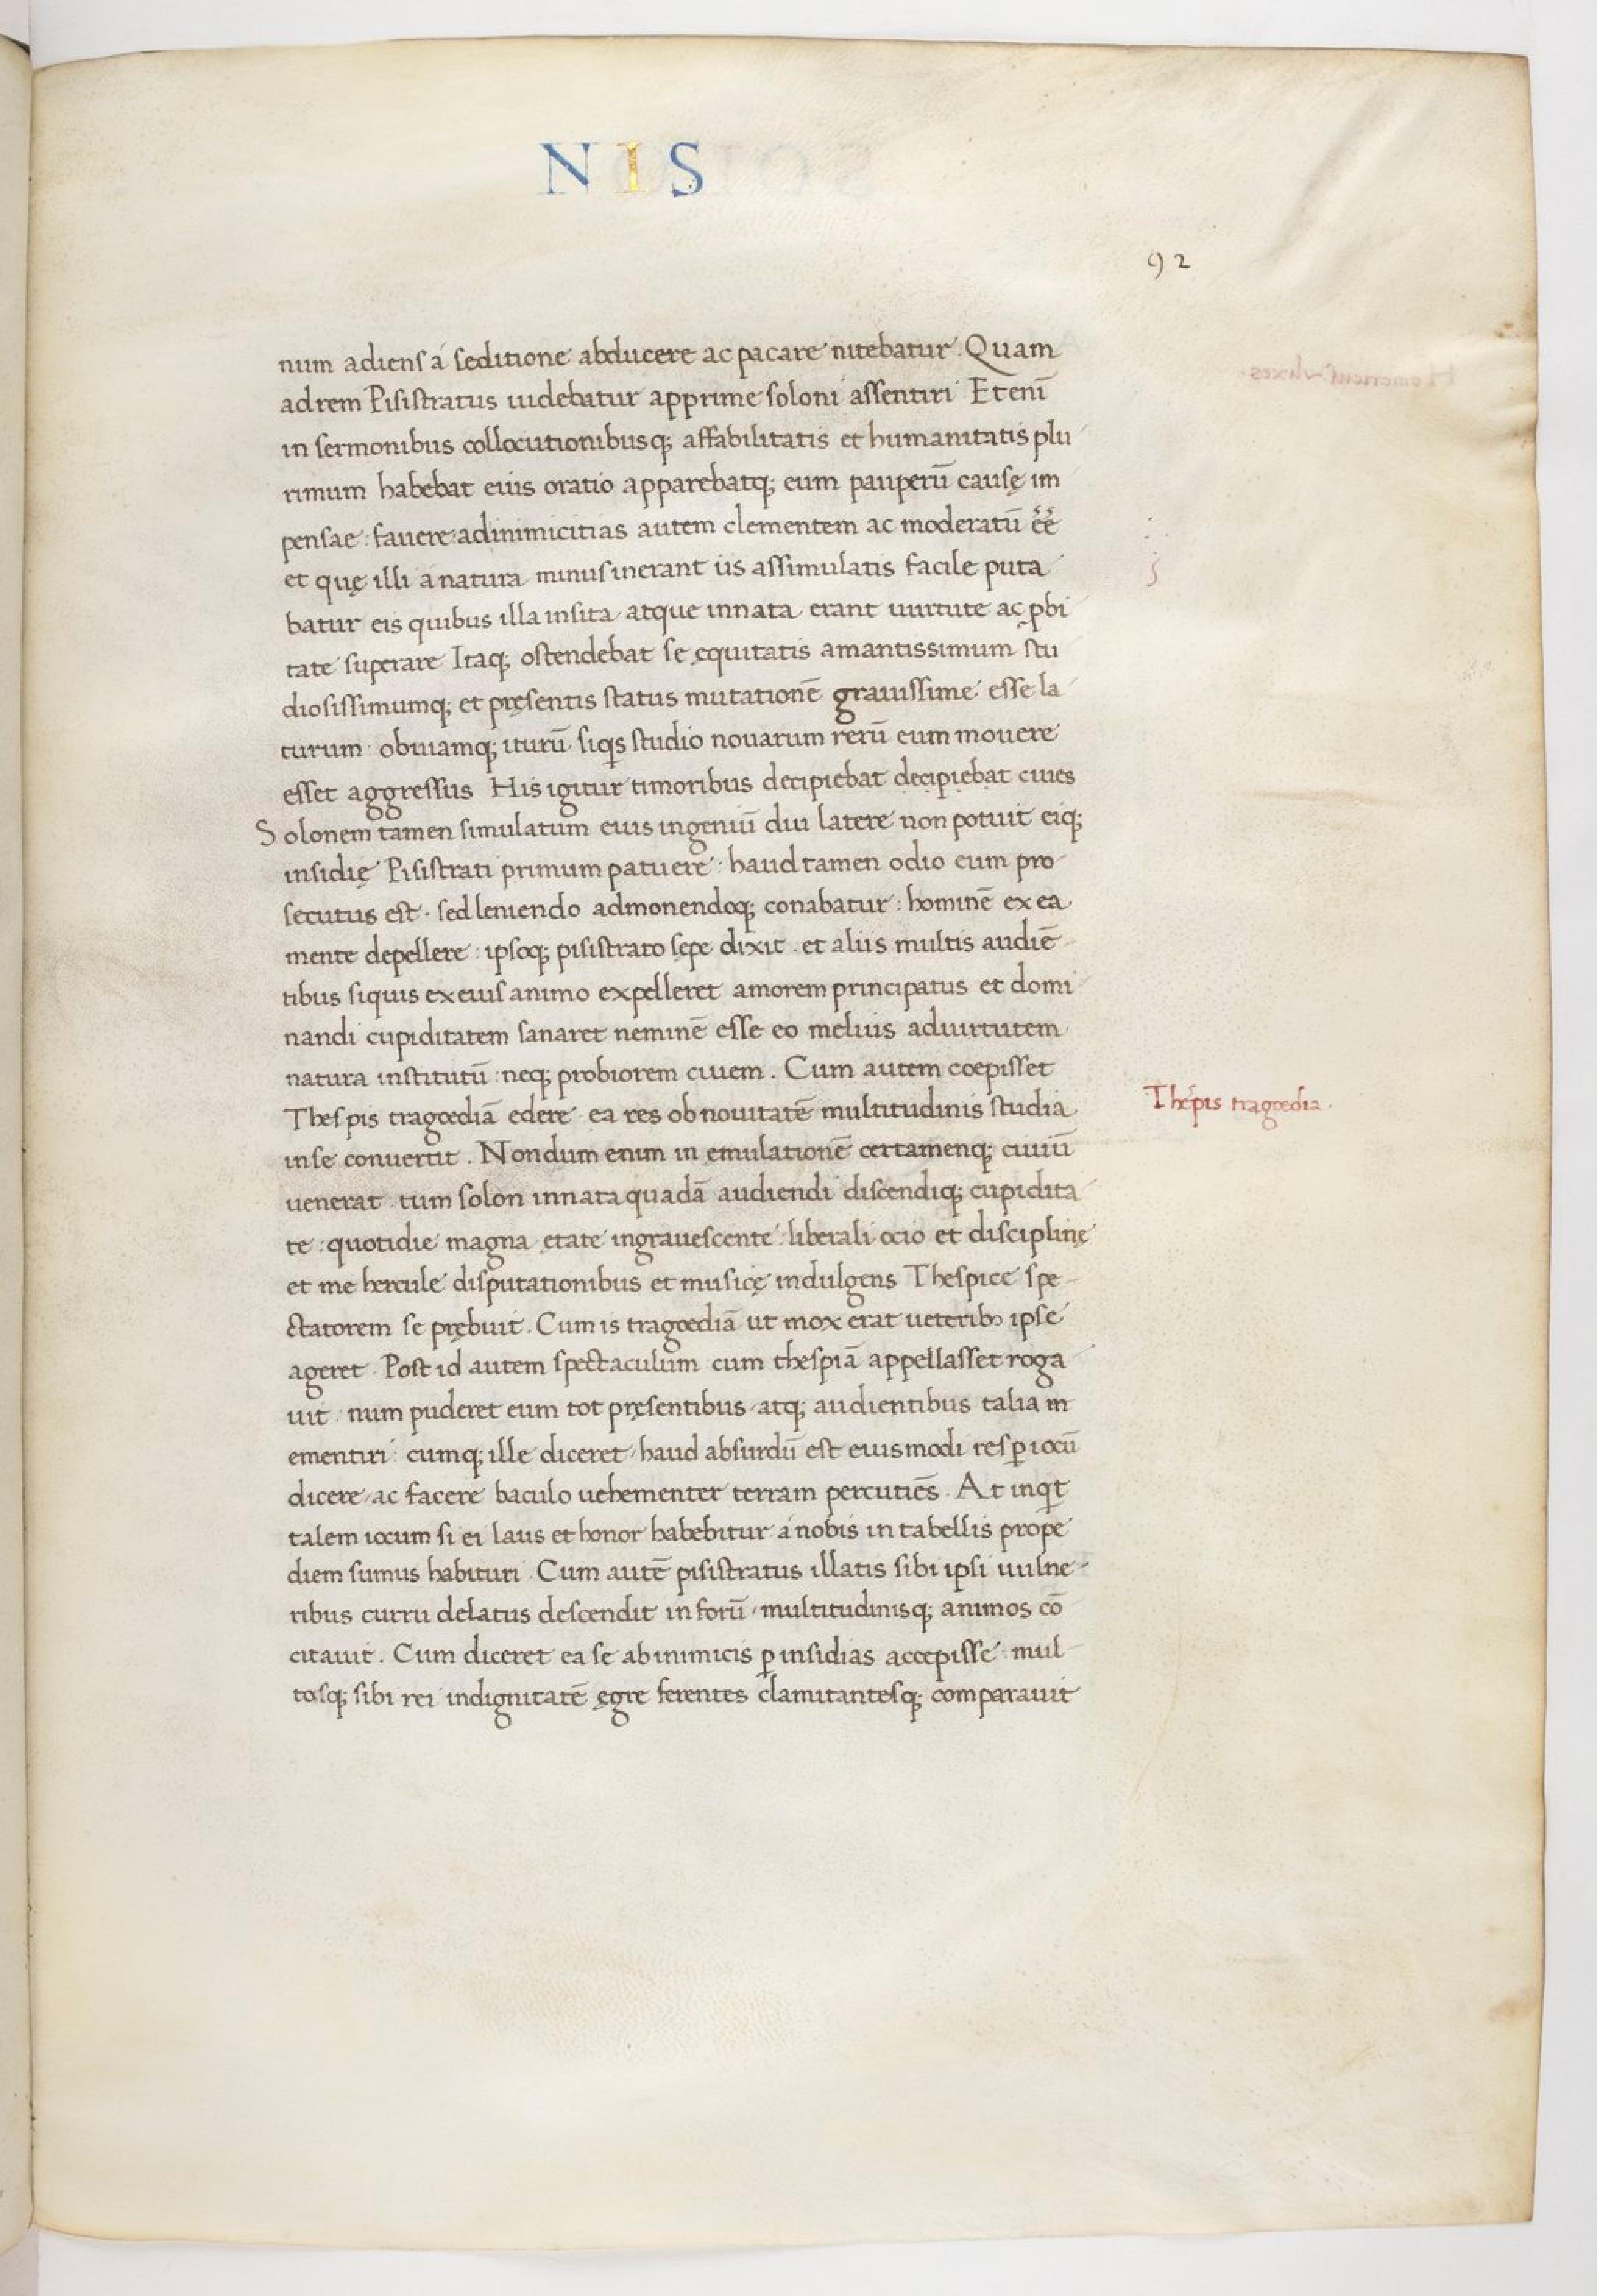 NIS
92
num adiens á seditione abducere ac pacare nitebatur. Quam
ad rem Pisistratus uidebatur apprime soloni assentiri Et eni᷑
in sermonibus collocutionibusq; affabilitatis et humanitatis plu
rimum habebat eius oratio apparebatq; eum pauperū causę im
pensae: fauere: ad inimicitias autem clementem ac moderatū ēē
et quę illi a natura minus inerant iis assimulatis facile puta
batur eis quibus illa insita atque innata erant uirtute ac ꝓbi
tate superare Itaq; ostendebat se ęquitatis amantissimum stu
diosissimumq; et pręsentis status mutationē grauissime esse la
turum: obuiamq; iturū siq̇s studio nouarum rerū eum mouere
esset aggressus His igitur timoribus decipiebat decipiebat ciues
Solonem tamen simulatum eius ingeniū diu latere non potuit eiq;
insidię Pisistrati primum patuere: haud tamen odio eum pro
secutus est. sed leniendo admonendoq; conabatur: hominē ex ea
mente depellere: ipsoq; pisistrato sępe dixit. et aliis multis audiē
tibus siquis ex eius animo expelleret amorem principatus et domi
nandi cupiditatem sanaret neminē esse eo melius ad uirtutem
natura institutū: neq; probiorem ciuem. Cum autem coepisset
Thespis tragœdiā edere ea res ob nouitatē multitudinis studia
in se conuertit. Nondum enim in ęmulationē certamenq; ciuiū
uenerat. tum solon innata quadā audiendi discendiq; cupidita
te: quotidie magna ętate ingrauescente: liberali ocio et disciplinę
et me hercule disputationibus et musicę indulgens Thespice spe
ctatorem se prębuit. Cum is tragœdiā ut mox erat ueterib; ipse
ageret. Post id autem spectaculum cum thespiā appellasset roga
uit: num puderet eum tot pręsentibus atq; audientibus talia in
ementiri: cumq; ille diceret haud absurdū est eiusmodi res ꝑ iocū
dicere ac facere baculo uehementer terram percutiēs. At inq̇t
talem iocum si ei laus et honor habebitur á nobis in tabellis prope
diem sumus habituri. Cum autē pisistratus illatis sibi ipsi uulne
ribus curru delatus descendit in forū, multitudinisq; animos cō
citauit. Cum diceret ea se ab inimicis ꝑ insidias accepisse: mul
tosq; sibi rei indignitatē ęgre ferentes clamitantesq; comparauit
Thespis tragœdia.